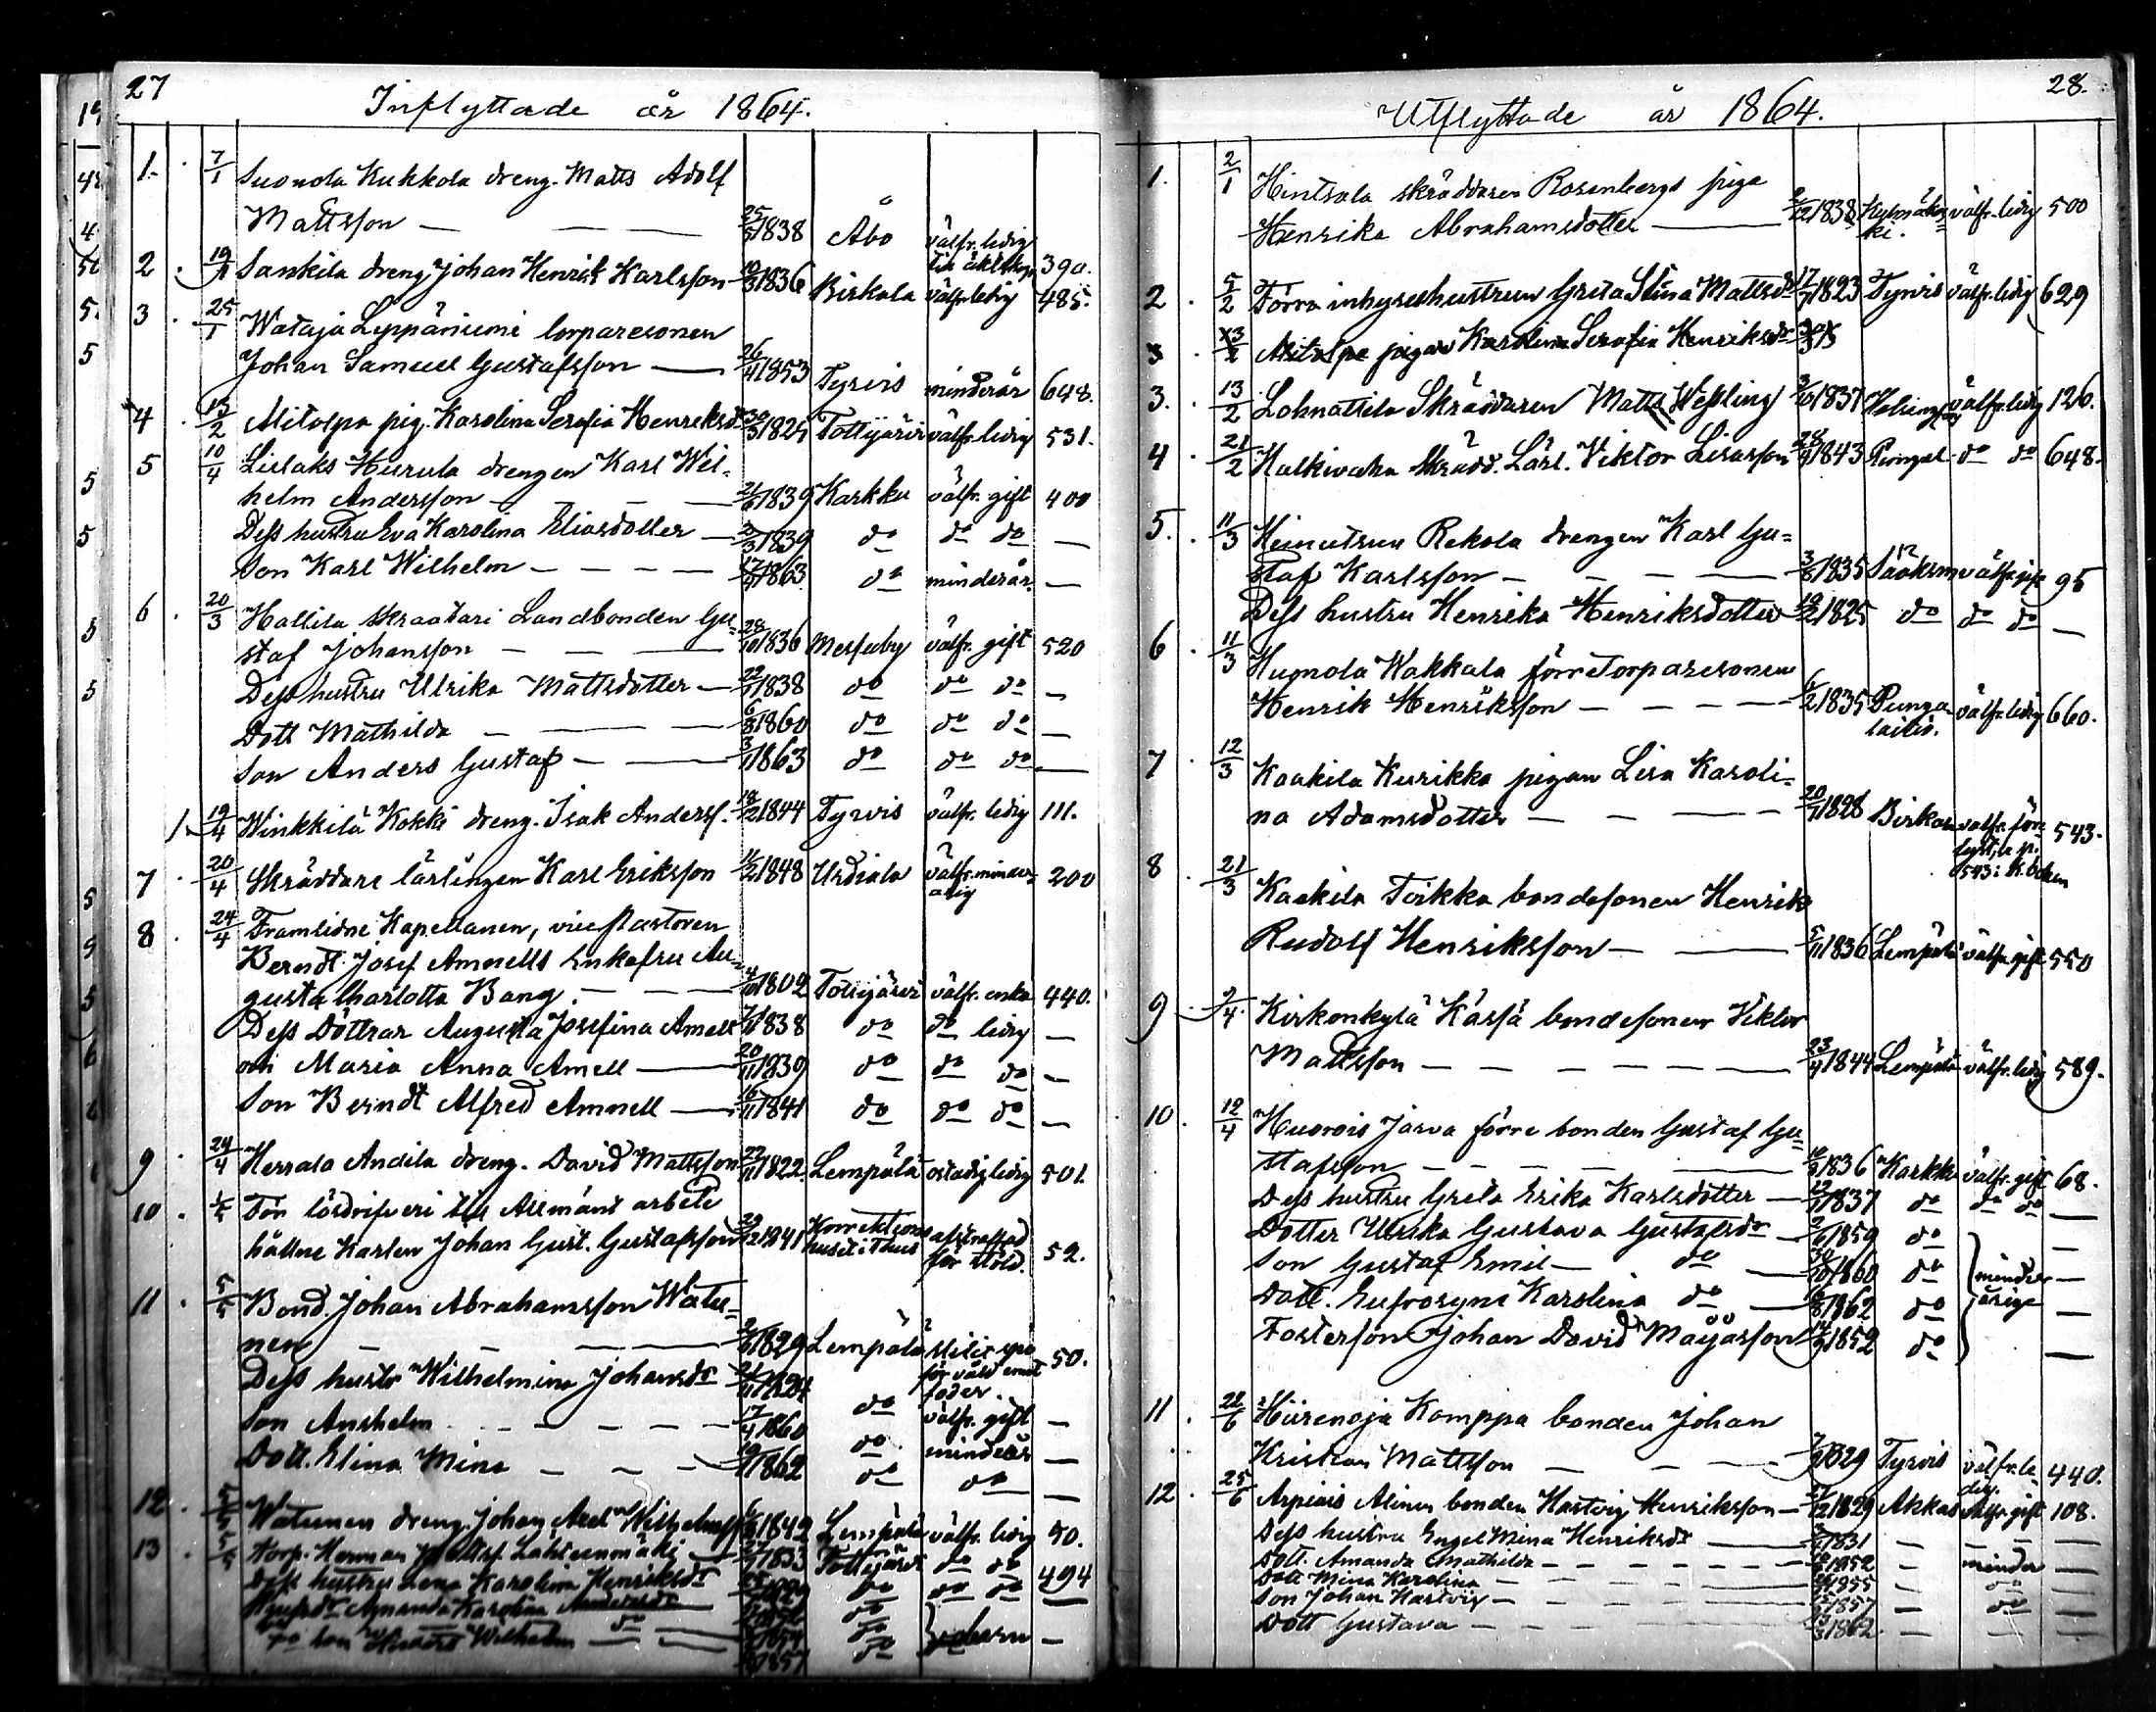 27
Inflyttade år 1864.
1. 7/1 Suonola Kukkola dreng. Matts Adolf
Mattsson — 25/5 1838 Åbo välfr. ledig 390.
2. 19/1 Sankila dreng Johan Henrik Karlsson 10/3 1836 Birkala välfr. ledig 485.
3. 25/1 Wataja Leppäniemi torparesonen
Johan Samuel Gustafsson — 26/4 1853 Tyrvis minderår 648.
4. 13/2 Alitalpa pig. Karolina Serafia Henriksd. 30/3 1825 Tottijärvi välfr. ledig 531.
5 10/4 Liulaks Hurula drengen Karl Wil-
helm Andersson 21/6 1839 Karkku välfr. gift 400
Dess hustru Eva Karolina Eliasdotter — 2/3 1839 do do do —
Son Karl Wilhelm — 1863 do minderår. —
6. 20/3 Hallila Skraatari Landbonden Gu-
staf Johansson — 28/10 1836 Messuby välfr. gift 520
Dess hustru Ulrika Mattsdotter — 22/1 1838 do do do —
Dott Mathilda — 6/3 1860 do do do —
Son Anders Gustaf — 3/1 1863 do do do —
1. 19/4 Winkkilä Kokki dreng. Isak Anderss. 18/12 1844 Tyrvis välfr. ledig 111.
7. 20/4 Skräddare lärlingen Karl Eriksson 11/2 1848 Urdiala välfr. minder- 200
årig
8. 24/4 Framlidne Kapellanen, vice Pastoren
Berndt Josef Amnells Enkefru Au-
gusta Charlotta Bang. — 4/10 1802 Tottijärvi välfr. enka 440.
Dess Döttrar Augusta Josefina Amell 1838 do do ledig —
och Maria Anna Amell — 20/11 1839 do do do —
Son Berndt Alfred Amnell — 16/11 1841 do do do —
9. 24/4 Herrala Andila dreng. David Mattsson 22/11 1822 Lempälä ostadig ledig 501.
10. För lösdrifveri till Allmänt arbete
hållne Karlen Johan Gust. Gustafsson 1841 Korrektions afstraffad 52.
huset i Åhus för stöld.
11. 5/5 Bond. Johan Abrahamsson Watu-
nen — 1829 Lempälä 50.
för våld emot
fader.
Dess hustr Wilhelmina Johansdr do välfr. gift —
Son Anshelm — 17/4 1860 do minderår —
Dott. Elina Mina — 1862 do do —
12. 5/5 Watunen dreng. Johan Axel Wilhelmss 1842 Lempälä välfr. ledig 50.
13. 5/5 Torp. Herman 1833 Tottijärvi do do 494
Dess hustru Lena Karolina Henriksdr do do do —
Amanda Karolina do
son Wilhelm — do — 1857 do —
28.
Utflyttade år 1864.
1. 2/1 Hintsala skräddaren Rosenbergs piga
Henrika Abrahamsdotter — 2/12 1838 Kylmäkos- välfr. ledig 500
ki.
2. 5/2 Förra inhyseshustrun Greta Stina Mattsdr 17/7 1823 Tyrvis välfr. ledig 629
3. 13/2 Alitalpa pigan Karolina Serafia Henriksdr
3. 13/2 Lohnattila Skräddaren Matts Wessling 1837 Helsingfors välfr. ledig 126.
4. 21/2 Halkivaha Skrädd. Lärl. Viktor Lisasson 28/9 1843 Pungal. do do 648.
5. 11/3 Heinutsuu Rekola drengen Karl Gu-
staf Karlsson — 3/8 1835 Sääksm välfr. gift 95
Dess hustru Henrika Henriksdotter 19/2 1825 do do do —
6. 11/3 Hugnola Wakkala förre Torparesonen
Henrik Henriksson — 6/2 1835 Punga- välfr. ledig 660.
laitio.
7. 12/3 Kaakila Kurikka pigan Lisa Karoli-
na Adamsdotter — 20/7 1828 Birkala välfr. 543.
8. 21/3 Kaakila Toikka bondesonen Henrik
Rudolf Henriksson — 5/11 1836 Lempälä välfr. gift 550
9. 2/4 Kirkonkylä Käsjä bondesonen Viktor
Mattsson — 23/4 1844 Lempälä välfr. ledig 589.
10. 12/4 Huorois Jarva förre bonden Gustaf Gu-
stafsson — 1836 Karkku välfr. gift 68.
Dess hustru Greta Erika Karlsdotter — 1837 do do do —
Dotter Ulrika Gustava Gustafsdr — 1859 do —
Son Gustaf Emil — do — 30/10 1860 do minder- —
Dott. Eufrosyne Karolina do — 1862 do årige —
Fosterson Johan David Maijasson 14/9 1852 do —
11. 22/6 Hiirenoja Komppa bonden Johan
Kristian Mattsson — 1829 Tyrvis välfr. le- 440.
dig.
12. 25/6 Arpiais Alinen bonden Hartvig Henriksson — 27/12 1829 Akkas välfr. gift 108.
Dess hustru Engel Mina Henriksdr — 1831 — — —
Dott. Amanda Mathilda — 1852 — minder —
Dott Mina Karolina — 1855 — do —
Son Johan Hartvig — 1857 — do —
Dott Gustava — 1862 — — —